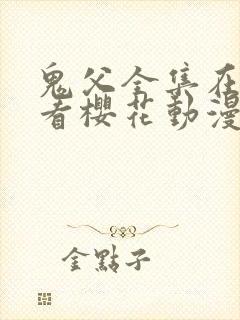 鬼父全集在
看櫻花動漫
金點子